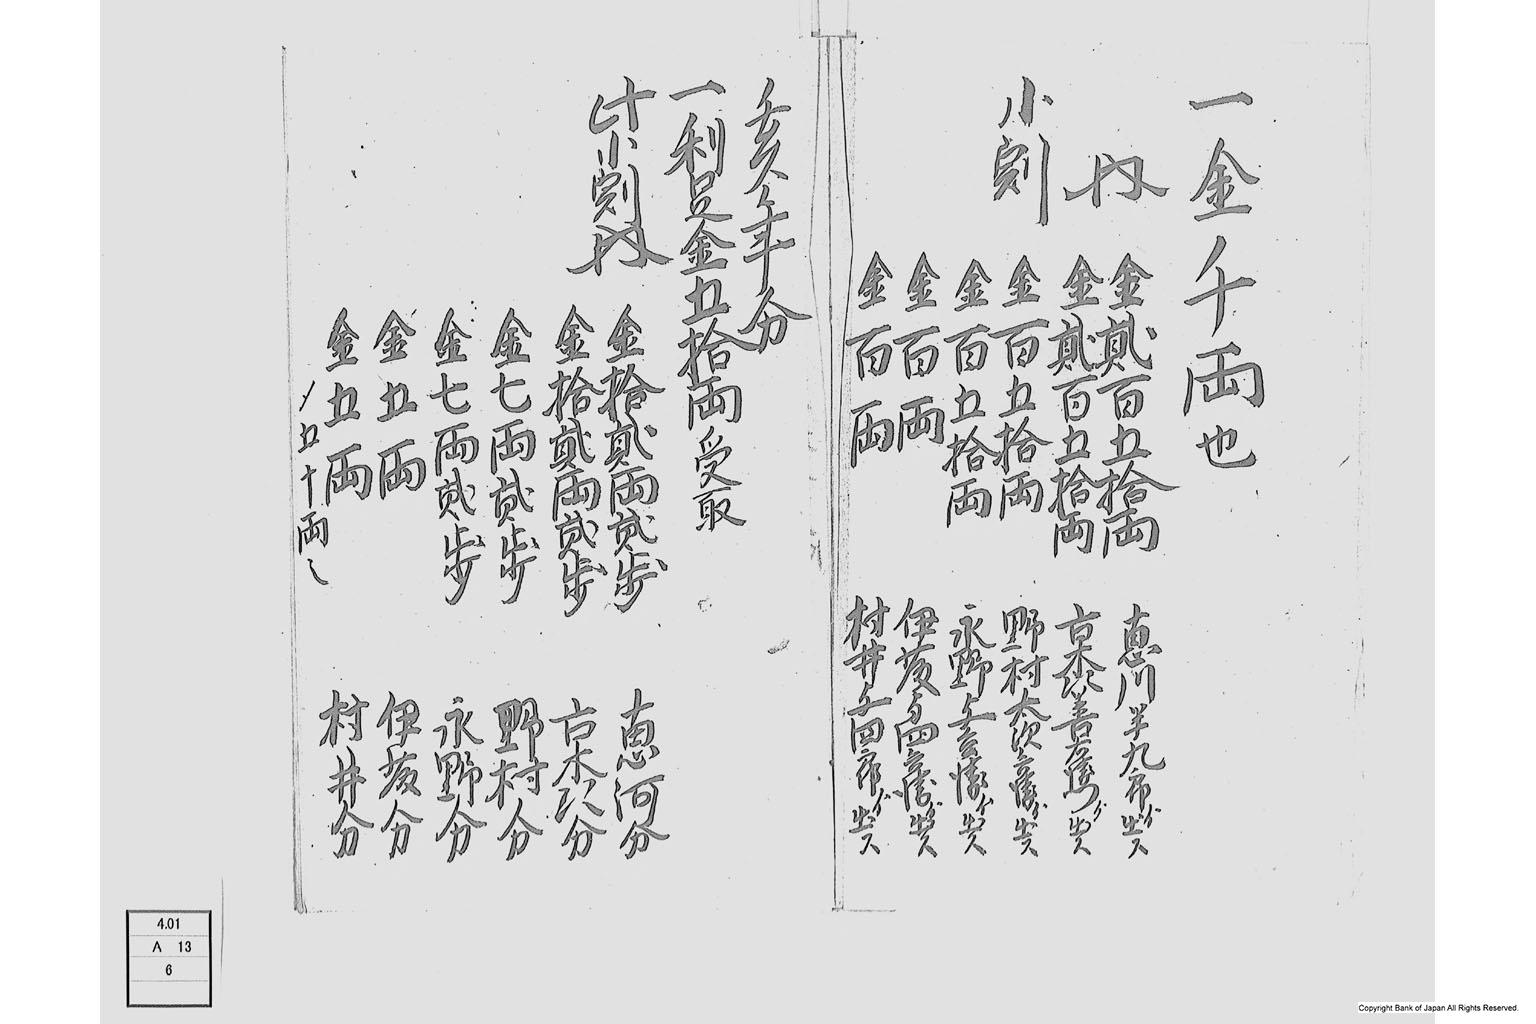 一金千両也
内
金貳百五拾両
金貳百五拾両
小割
金百五拾両
金百五拾両
金百両
金百両
恵川半九郎
出ス
野村
永野
伊藤
村井
四郎
出ス
亥年分
一利足金五拾両受取
此小割内
金拾貳両貳歩 恵河分
金拾貳両貳歩
金七両貳歩 野村分
金七両貳歩 永野分
金五両 伊藤分
金五両 村井分
〆五十両
4.01
A 13
6
Copyright Bank of Japan All Rights Reserved.